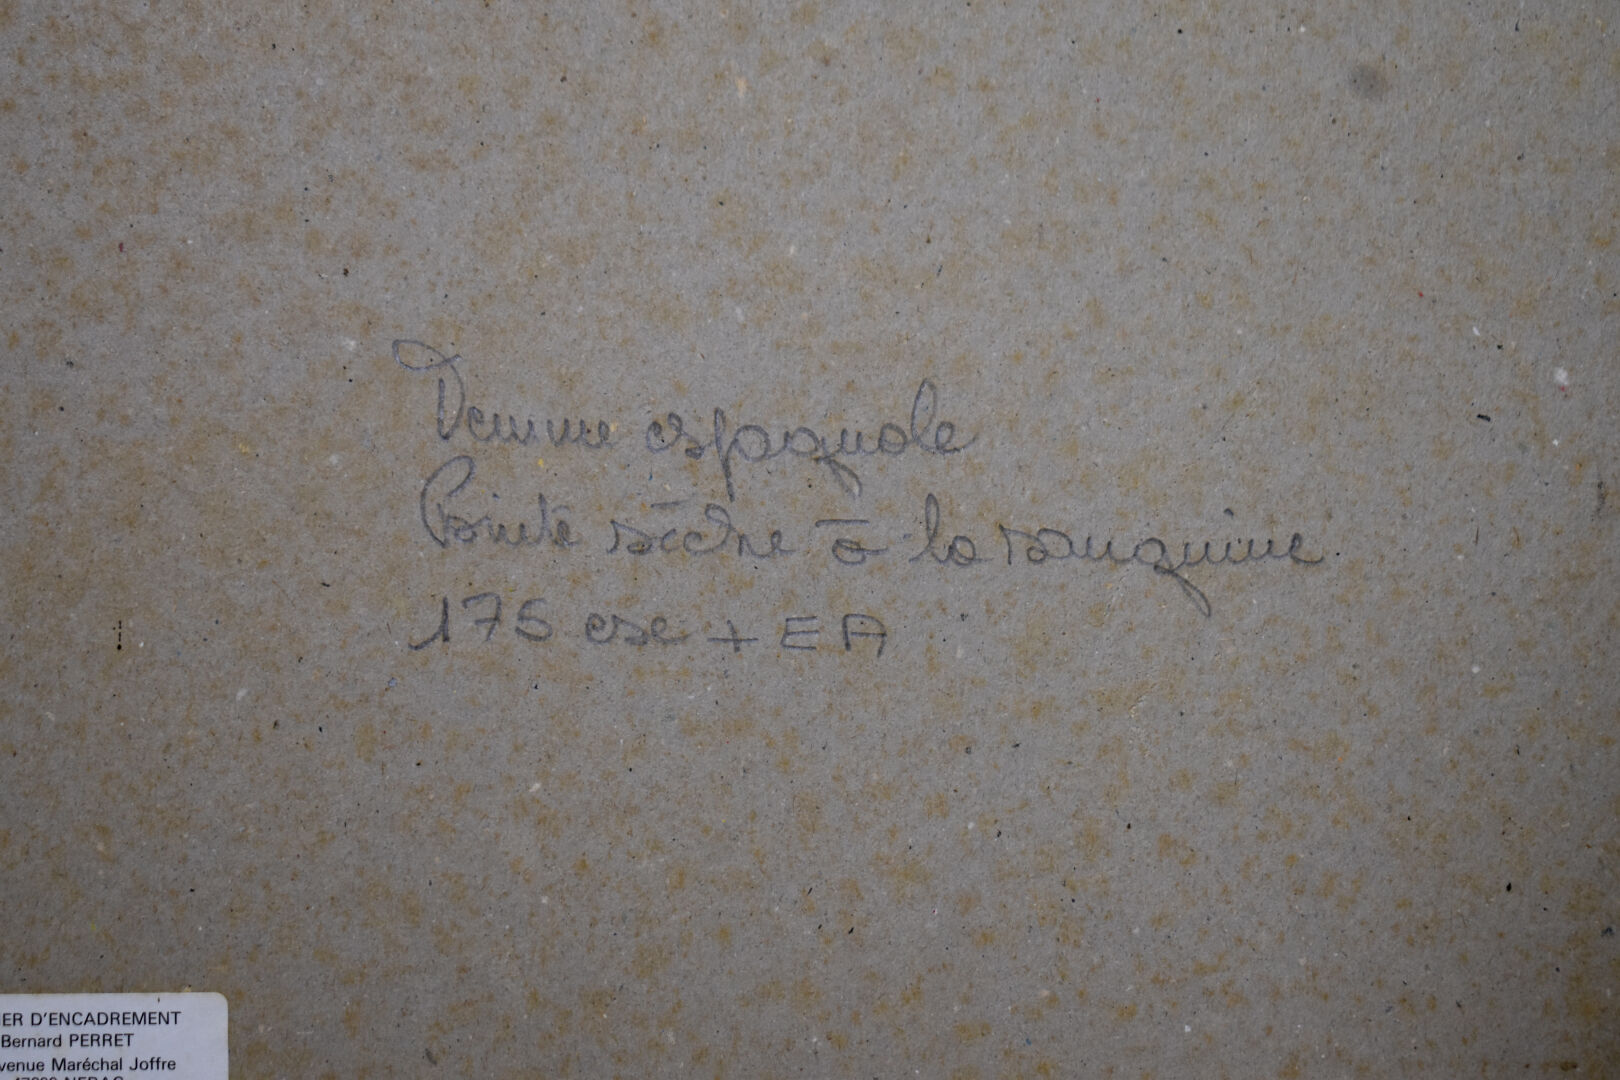 Femme espagnole
Pointe sèche à la sanguine
175 exe + EA
IER D'ENCADREMENT
Bernard PERRET
venue Maréchal Joffre
NERAC